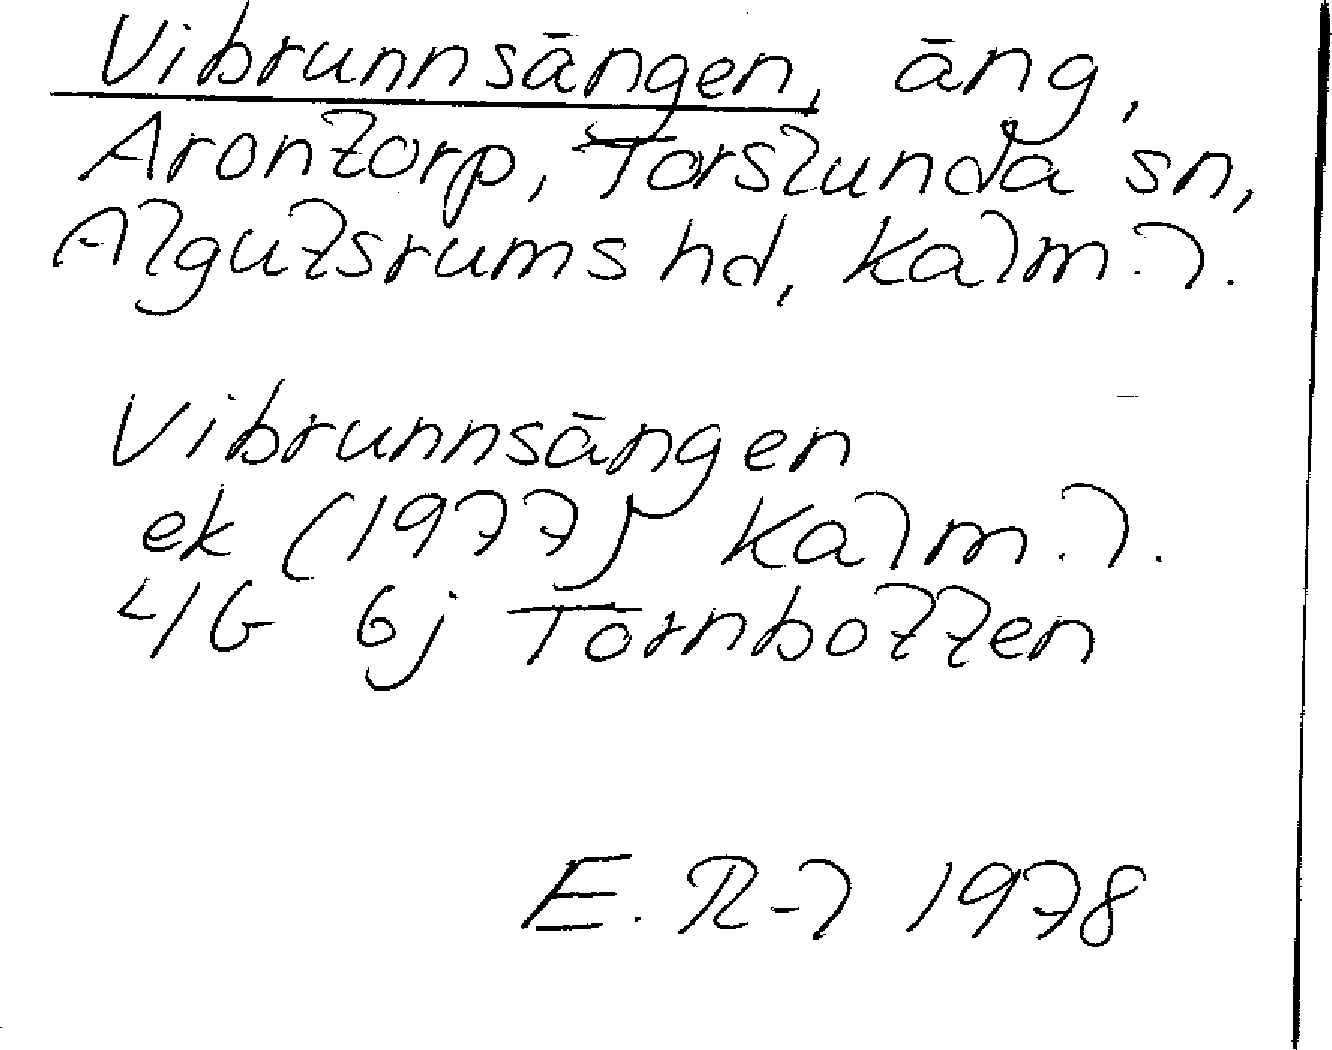 Vibrunnsängen, äng,
Arontorp, Torslunda sn,
Algutsrums hd, Kalm. l.
Vibrunnsängen
ek (1977) Kalm. l.
4G 6j Tornbotten
E. R-l 1978